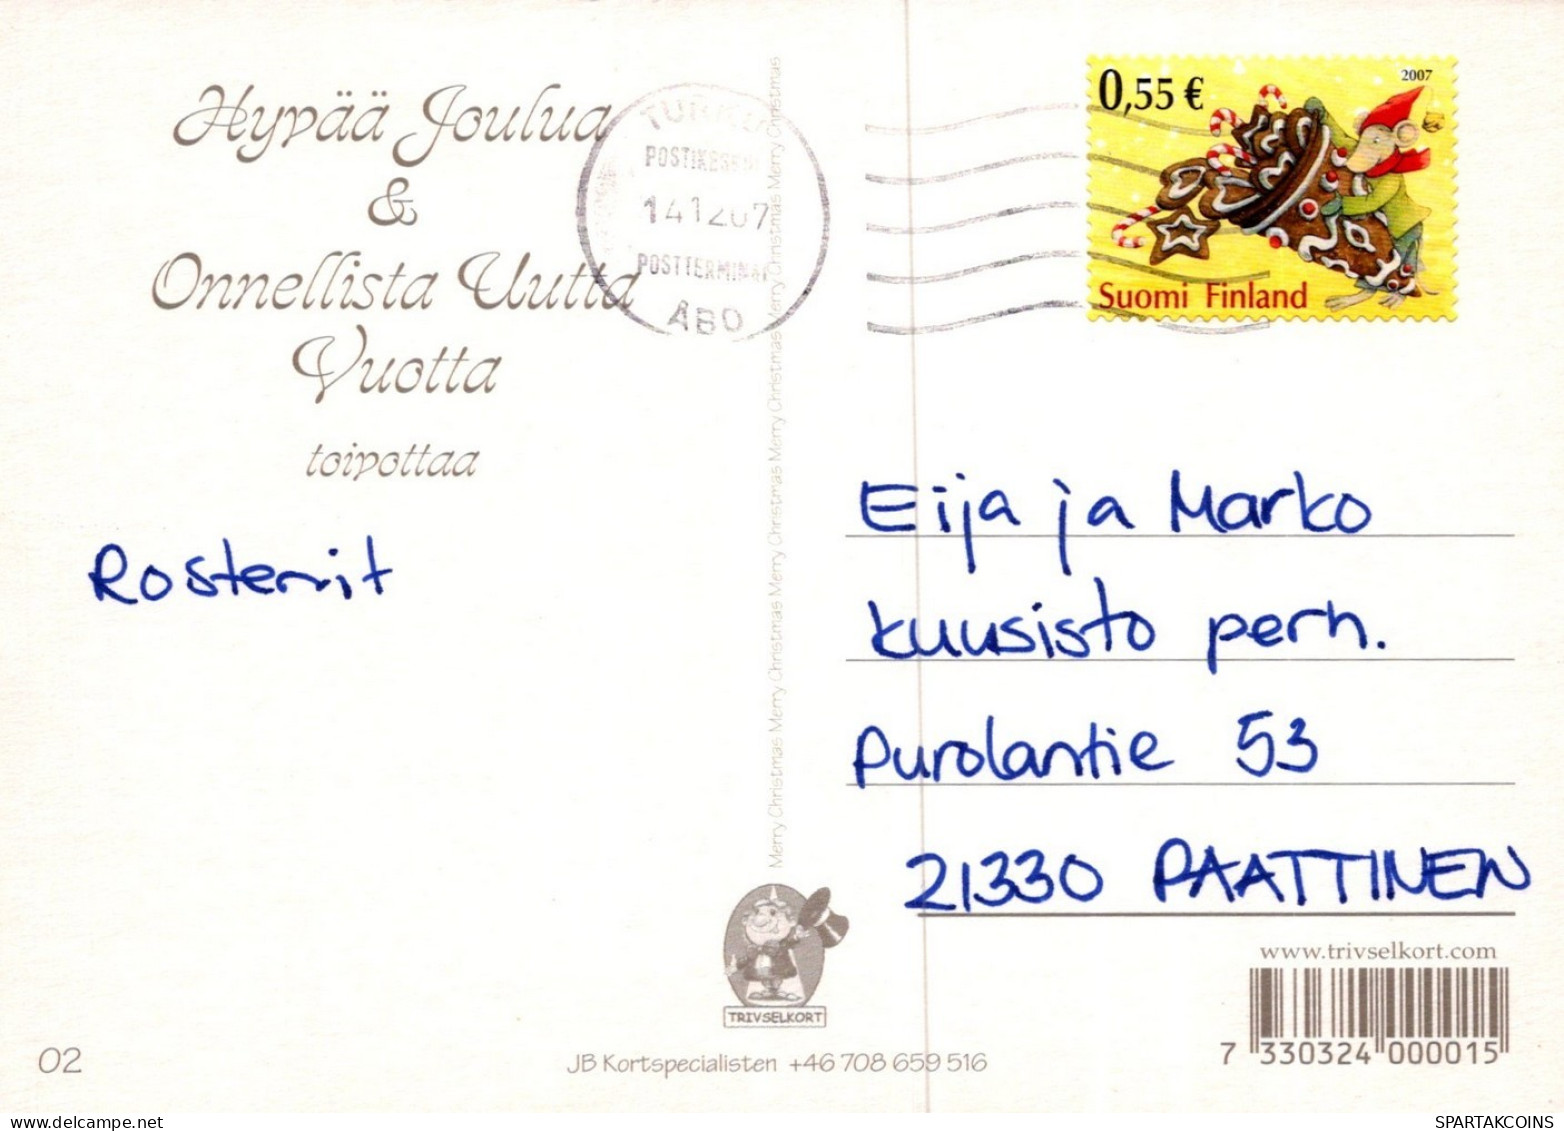 Hyvää Joulua
&
Onnellista Uutta
Vuotta
toivottaa
Rostenit
TURKU
POSTIKESKUS
141207
POSTTERMINAL
ÅBO
0,55 €
2007
Suomi Finland
Merry Christmas Merry Christmas Merry Christmas Merry Christmas Merry Christmas Merry Christmas Merry Christmas Merry Christmas
Eija ja Marko
Kuusisto perh.
Purolantie 53
21330 PAATTINEN
TRIVSELKORT
www.trivselkort.com
7 330324 000015
02
JB Kortspecialisten +46 708 659 516
SPARTAKCOINS